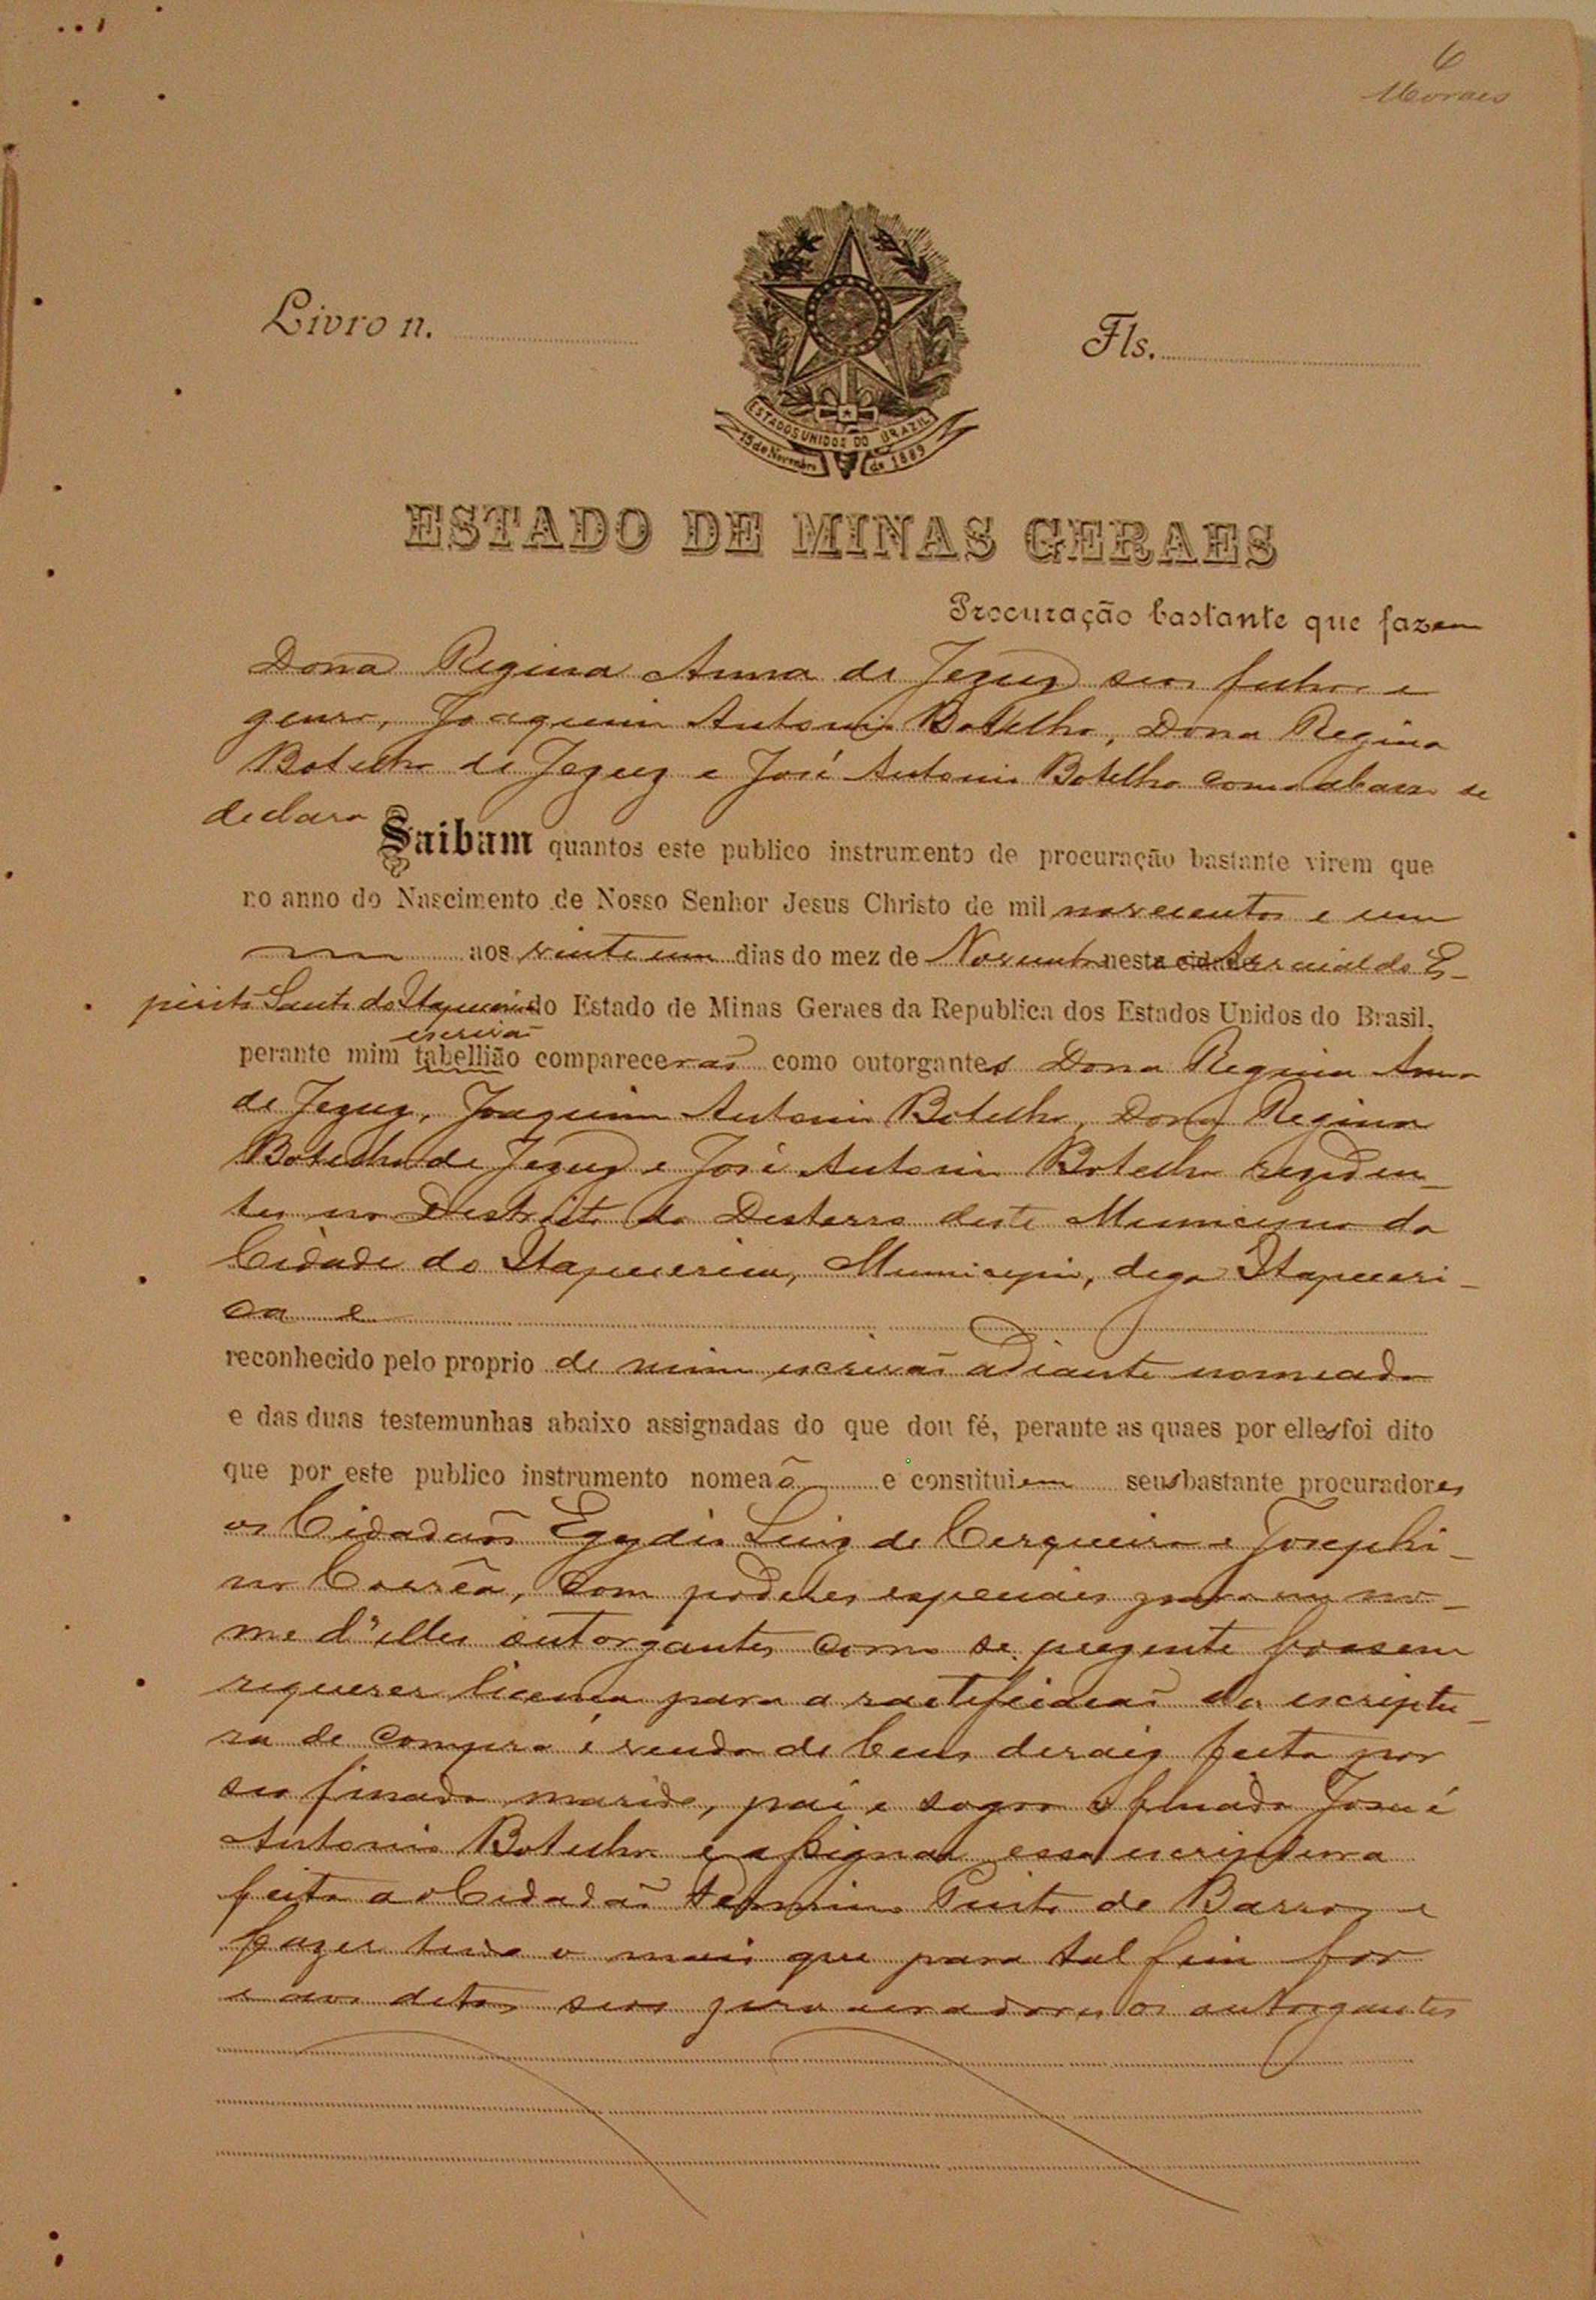 6
Moraes
Livro n.
Fls.
ESTADOS UNIDOS DO BRAZIL
15 de Novembro de 1889
ESTADO DE MINAS GERAES
Procuração bastante que fazem
Dona Regina Anna de Jezuz seos e
genro, Joaquim Antonio Botelho, Dona Regina
Botelho de Jezuz e José Antonio Botelho como abaixo se
declara
Saibam quantos este publico instrumento de procuração bastante virem que
no anno do Nascimento de Nosso Senhor Jesus Christo de mil novecentos e um
aos vinte um dias do mez de Novembro nesta cidade Arraial do E-
spirito Santo do Itapecerica do Estado de Minas Geraes da Republica dos Estados Unidos do Brasil,
escrivaõ
perante mim tabellião compareceraõ como outorgantes Dona Regina Anna
de Jezuz, Joaquim Antonio Botelho, Dona Regina
Botelho de Jezuz e José Antonio Botelho reziden-
tes no Destricto do Desterro deste Municipio da
Cidade do Itapecerica, Municipio, digo Itapeceri-
ca e
reconhecido pelo proprio de mim escrivaõ adiante nomeado
e das duas testemunhas abaixo assignadas do que dou fé, perante as quaes por elles foi dito
que por este publico instrumento nomeaõ e constituiem seus bastante procuradores
os Cidadaõs Egydio Luiz de Cerqueira e Josephi-
no Corrêa, com poderes especiaes para em no-
me d'elles outorgantes como se prezente fossem
requerer licença para a ractificacaõ da escriptu-
ra de compra e venda de bens deraiz feita por
seo finado marido, pai e sogro o finado José
Antonio Botelho e assignar essa escriptura
feita ao Cidadaõ Pinto de Barros e
fazer tudo o mais que para tal fim for
e aos ditos seos procuradores os outorgantes